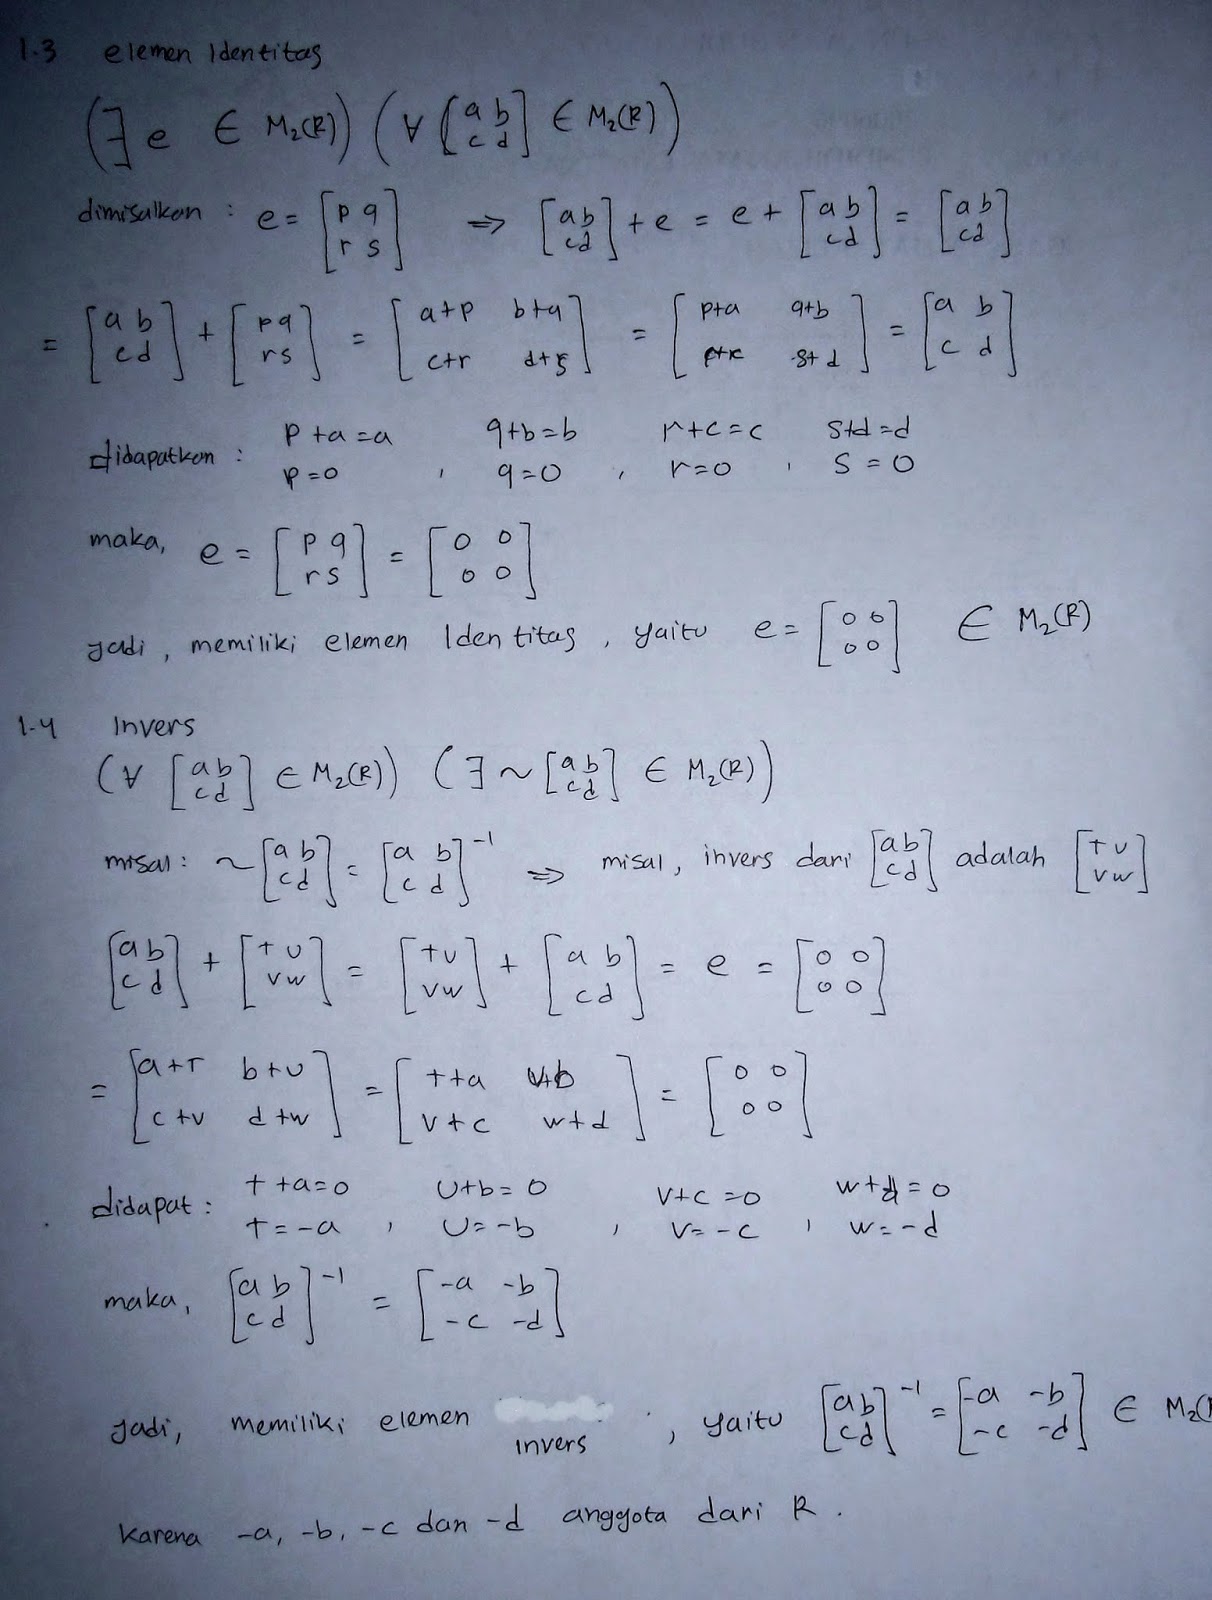 1.3 elemen Identitas
(∃ e ∈ M₂(R)) (∀ [a b; c d] ∈ M₂(R))
dimisalkan : e = [p q; r s] ⇒ [a b; c d] + e = e + [a b; c d] = [a b; c d]
= [a b; c d] + [p q; r s] = [a+p b+q; c+r d+s] = [p+a q+b; r+c s+d] = [a b; c d]
didapatkan : p+a=a q+b=b r+c=c s+d=d
p=0 , q=0 , r=0 , s=0
maka, e = [p q; r s] = [0 0; 0 0]
jadi, memiliki elemen Identitas, yaitu e = [0 0; 0 0] ∈ M₂(R)
1.4 Invers
(∀ [a b; c d] ∈ M₂(R)) (∃ ~ [a b; c d] ∈ M₂(R))
misal : ~[a b; c d] = [a b; c d]⁻¹ ⇒ misal, invers dari [a b; c d] adalah [t u; v w]
[a b; c d] + [t u; v w] = [t u; v w] + [a b; c d] = e = [0 0; 0 0]
= [a+t b+u; c+v d+w] = [t+a u+b; v+c w+d] = [0 0; 0 0]
didapat : t+a=0 u+b=0 v+c=0 w+d=0
t=-a , u=-b , v=-c , w=-d
maka, [a b; c d]⁻¹ = [-a -b; -c -d]
jadi, memiliki elemen invers ; yaitu [a b; c d]⁻¹ = [-a -b; -c -d] ∈ M₂(
karena -a, -b, -c dan -d anggota dari R.